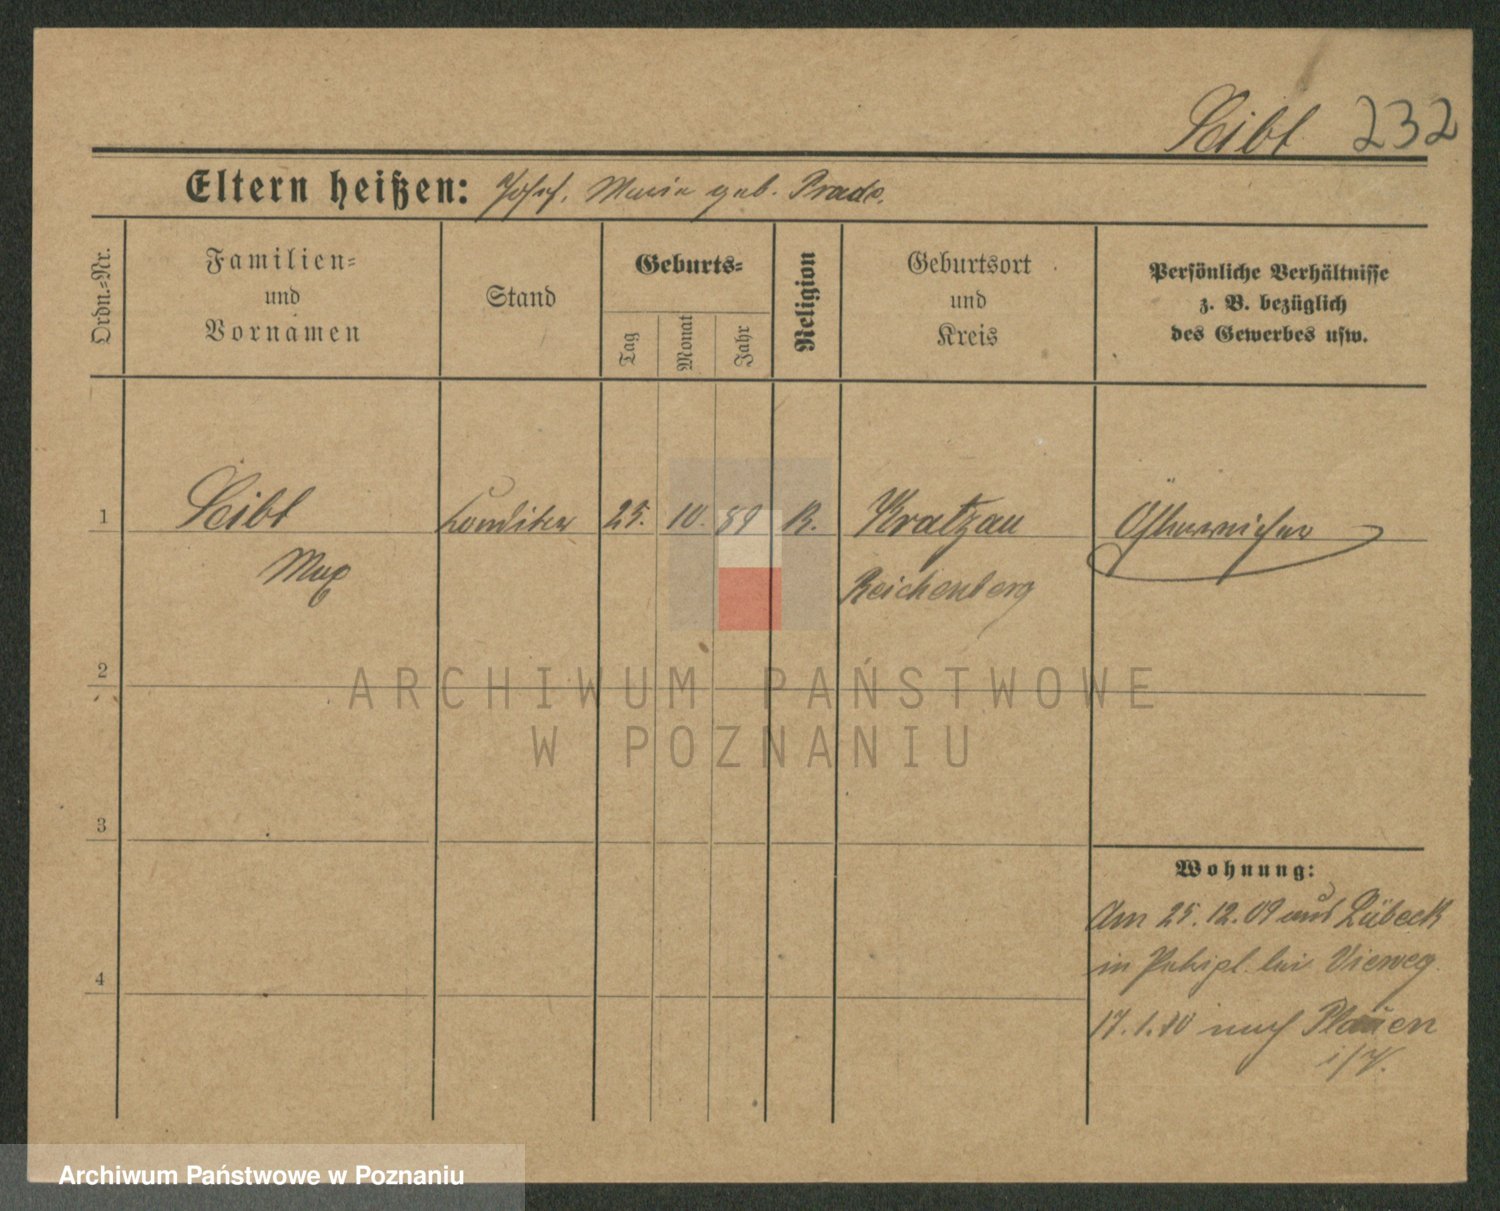 Seibt 232
Eltern heißen: Josef, Marie geb. Prade.
Ordn.-Nr.
Familien-
und
Vornamen
Stand
Geburts-
Tag
Monat
Jahr
Religion
Geburtsort
und
Kreis
Persönliche Verhältnisse
z. B. bezüglich
des Gewerbes usw.
1 Seibt Konditor 25. 10. 89 K. Kratzau Österreicher
Max Reichenberg
2
3
4
Wohnung:
Am 25.12.09 aus Lübeck
in bei Vieweg
17.1.10 nach Plauen
i/V.
ARCHIWUM PAŃSTWOWE
W POZNANIU
Archiwum Państwowe w Poznaniu